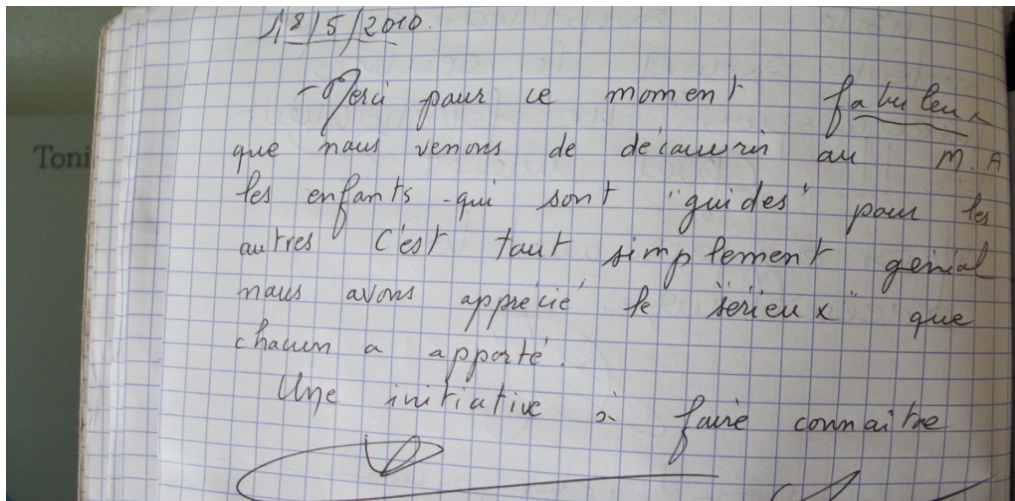 18/5/2010.
- Merci pour ce moment fabuleux
Toni
que nous venons de découvrir au M.A
les enfants - qui sont "guides" pour les
autres c'est tout simplement génial
nous avons apprécié le "sérieux" que
chacun a apporté.
Une initiative à faire connaître